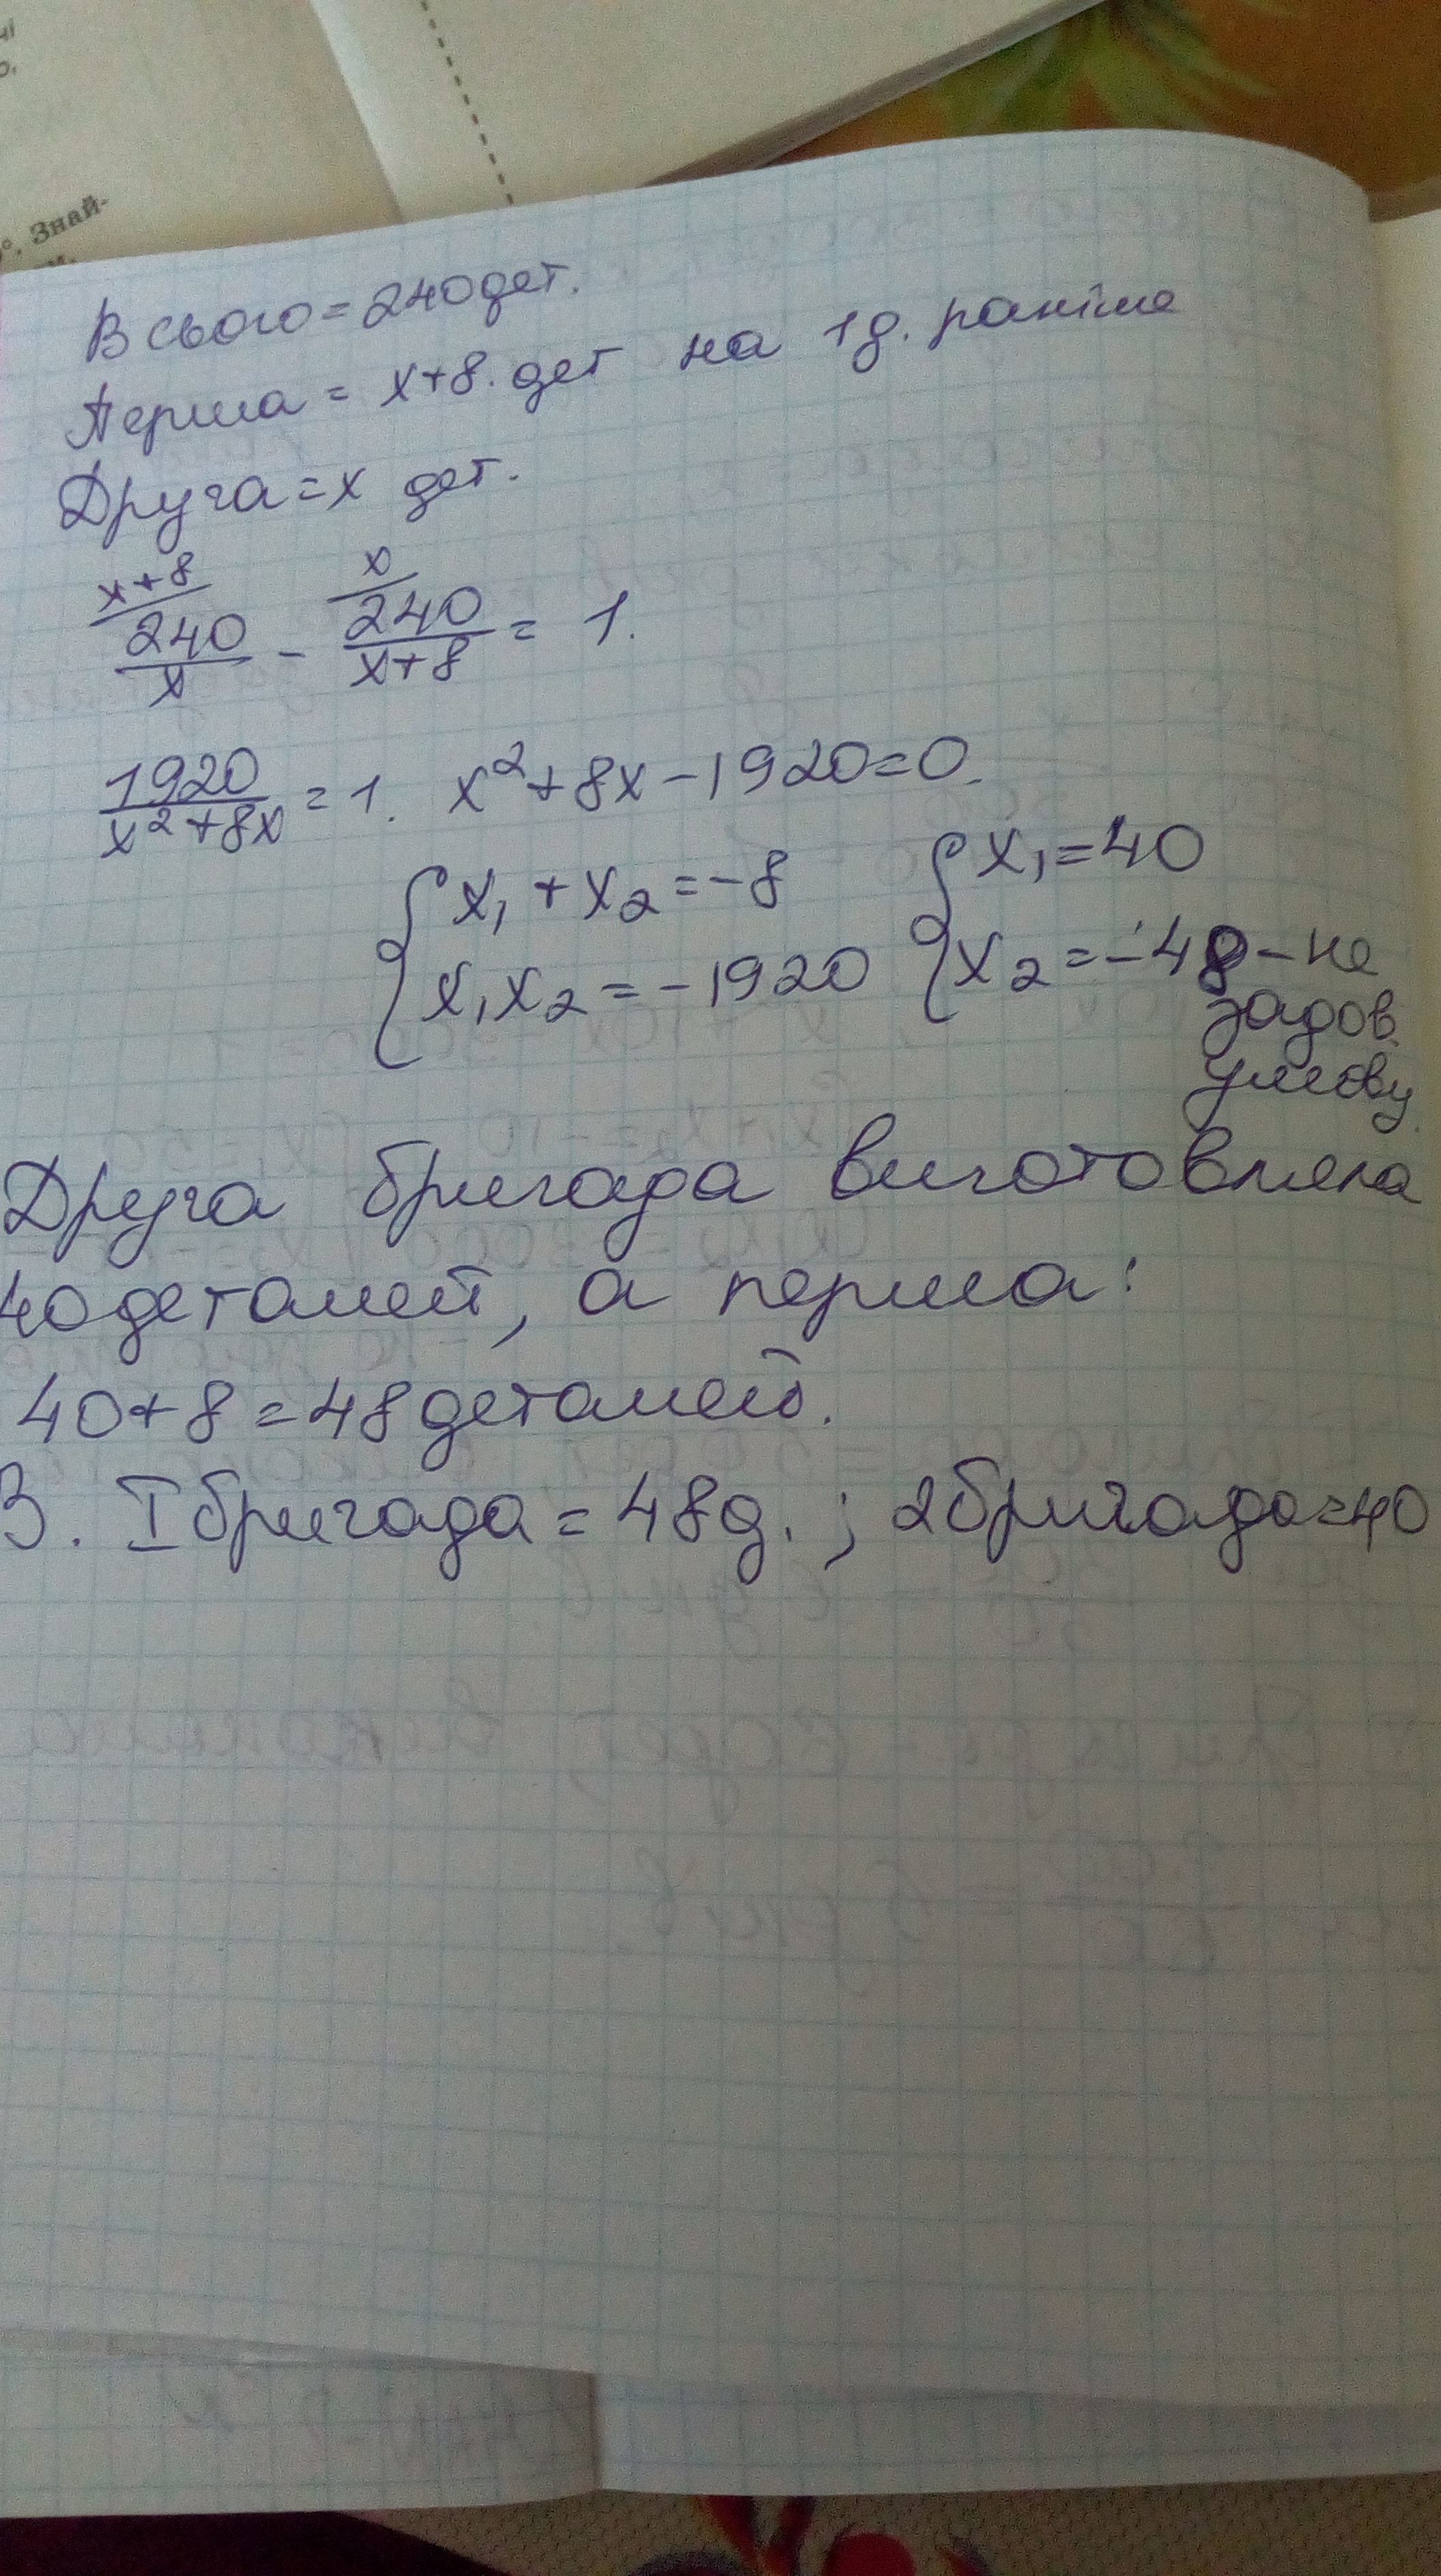 чі
о,
°. Знай-
Всього = 240 дет.
Перша = x+8. дет на 1д. раніше
Друга = x дет.
x+8/ x/
240/x - 240/x+8 = 1.
1920/x²+8x = 1. x²+8x-1920=0.
{x₁+x₂=-8 {x₁=40
{x₁x₂=-1920 {x₂=-48-не
задов.
умову.
Друга бригада виготовляла
40 деталей, а перша:
40+8=48 деталей.
В. I бригада = 48д. ; 2 бригада = 40